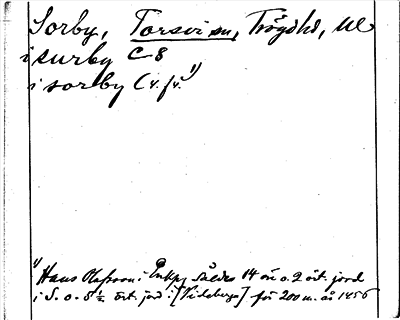 Sorby, Torsvi sn, Trögds hd, Ul
i surby C 8
i sorby C 4. f 4. 1)
1) Hans Olafsson i Enkpg säldes 14 öre o. 2 ört. jord
i S. o. 5 ½ ört. jord i [Videberga] för 200 m. år 1456